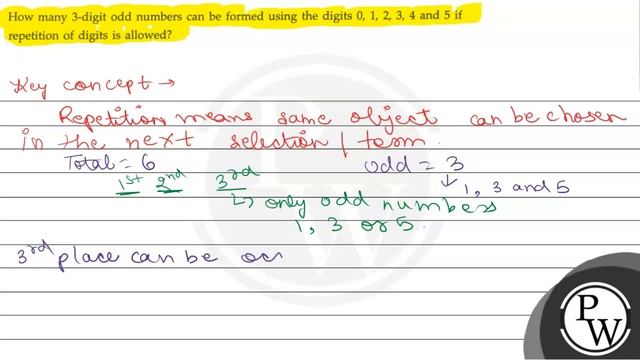 How many 3-digit odd numbers can be formed using the digits 0, 1, 2, 3, 4 and 5 if
repetition of digits is allowed?
Key concept →
Repetition means same object can be chosen
in the next selection / term.
Total = 6 odd = 3
1st 2nd 3rd ↓ 1, 3 and 5
↳ only odd numbers
1, 3 or 5.
3rd place can be oc
PW